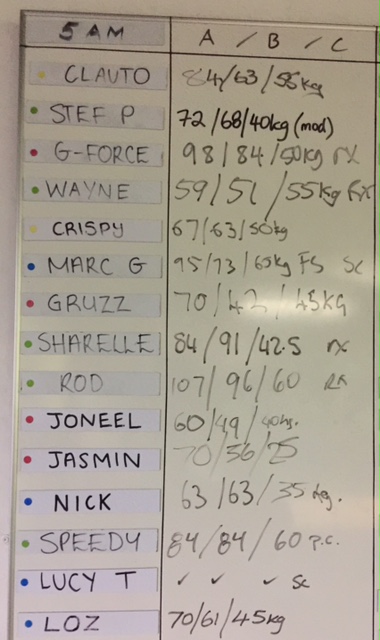 5 AM A / B / C
CLAUTO 84/63/55kg
STEF P 72/68/40kg (mod)
G-FORCE 98/84/50kg RX
WAYNE 59/51/55kg RX
CRISPY 67/63/50kg
MARC G 95/73/65kg FS SC
GRUZZ 70/42/45KG
SHARELLE 84/91/42.5 rx
ROD 107/96/60 RX
JONEEL 60/49/
JASMIN 70/56/25
NICK 63/63/35kg.
SPEEDY 84/84/60 P.C.
LUCY T ✓ ✓ ✓ Sc
LOZ 70/61/45kg